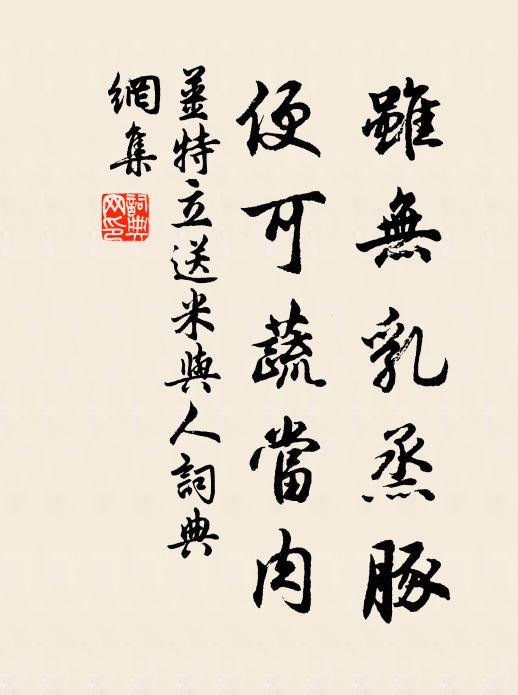 雖無乳烝豚
便可蔬當肉
薑特立送米與人詞典
網集
詞典
网印